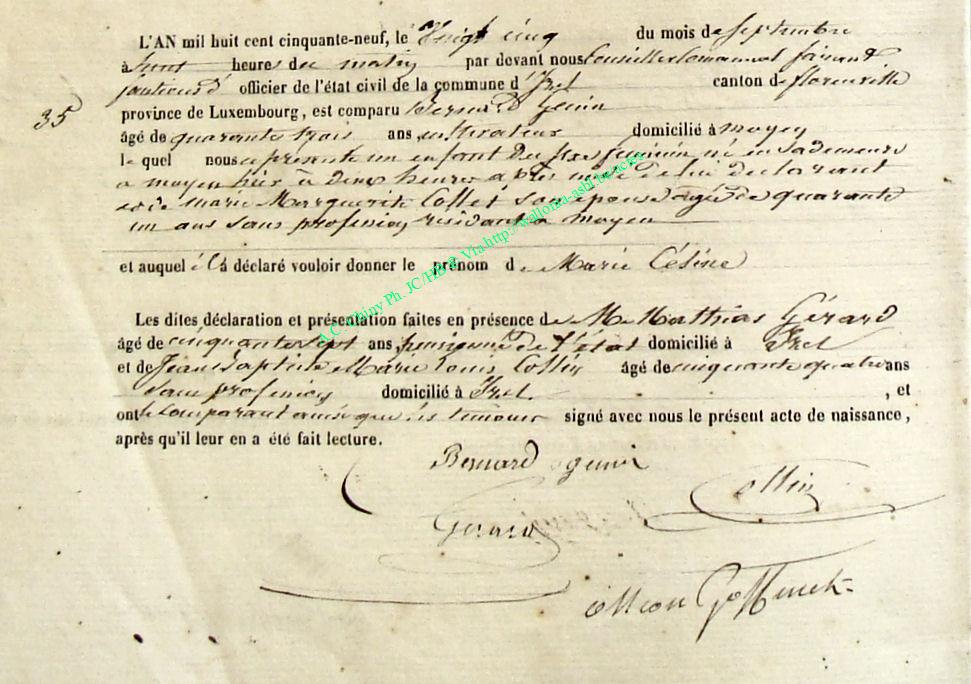 L'AN mil huit cent cinquante-neuf, le Vingt cinq du mois de Septembre
à heures du matin par devant nous Conseiller Communal faisant
fonctions d' officier de l'état civil de la commune d'Izel canton de florenville
35
province de Luxembourg, est comparu Bernard Genin
âgé de quarante trois ans, cultivateur domicilié à moyen
le quel nous a présenté un enfant du sexe féminin né en sa demeure
a moyen hier à deux heures après midi de lui declarant
et de marie Marguerite Collet son épouse agée de quarante
un ans sans profession residante a moyen
et auquel il a déclaré vouloir donner le prénom de Marie Céline
Les dites déclaration et présentation faites en présence de Mathias Gérard
âgé de cinquante sept ans, pensionné de l'état domicilié à Izel
et de Jean Baptiste Marie Louis Collin âgé de cinquante quatre ans
sans profession domicilié à Izel , et
ont le Comparant ainsi que les témoins signé avec nous le présent acte de naissance,
après qu'il leur en a été fait lecture.
Bernard genin
Collin
Gerard
Goffinet
A.C. Chiny Ph. JC/HB & Via http://wallonia-asbl.be/actes